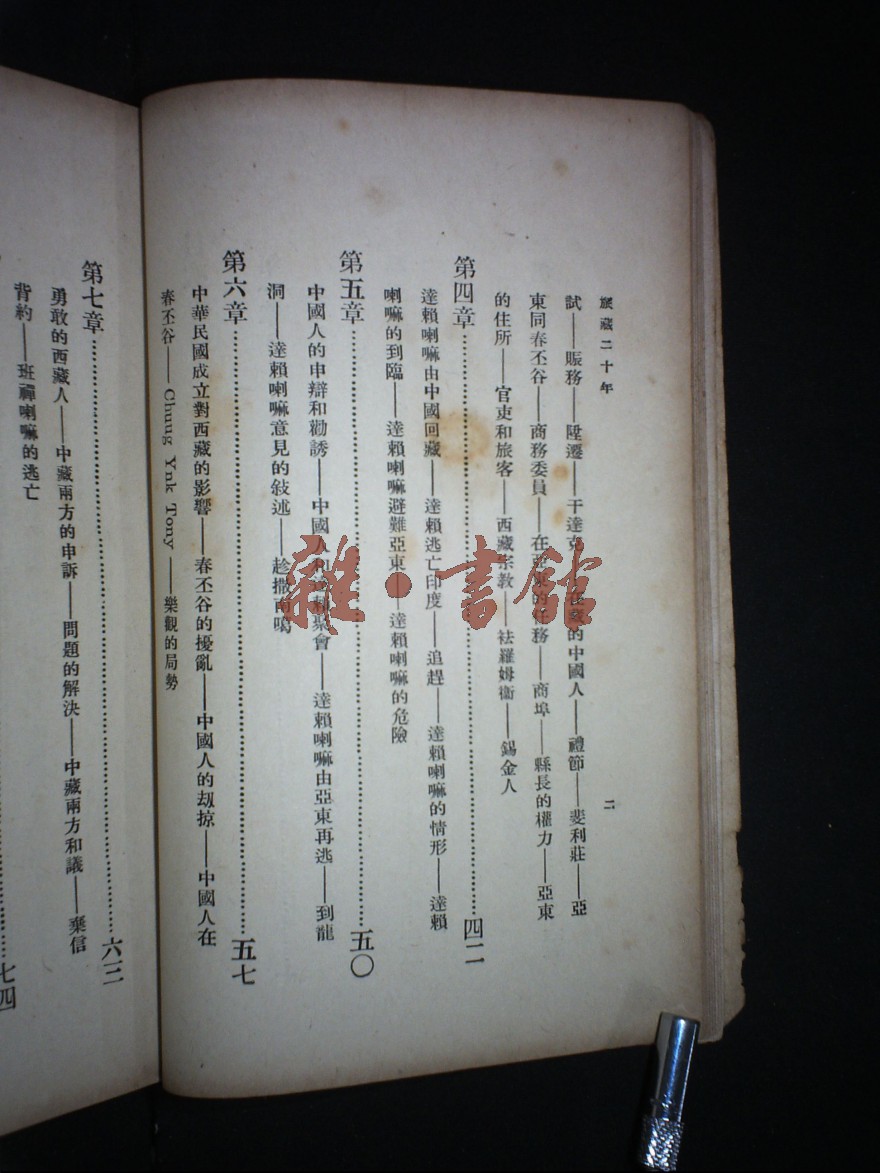 旅藏二十年
二
試——賑務——陞遷——干達克——在藏的中國人——禮節——斐利莊——亞
東同春丕谷——商務委員——在亞東的任務——商埠——縣長的權力——亞東
的住所——官吏和旅客——西藏宗教——祛羅姆衞——錫金人
第四章……四二
達賴喇嘛由中國回藏——達賴逃亡印度——追趕——達賴喇嘛的情形——達賴
喇嘛的到臨——達賴喇嘛避難亞東——達賴喇嘛的危險
第五章……五〇
中國人的申辯和勸誘——中國人和達賴聚會——達賴喇嘛由亞東再逃——到龍
洞——達賴喇嘛意見的敍述——趁撒而噶
第六章……五七
中華民國成立對西藏的影響——春丕谷的擾亂——中國人的刧掠——中國人在
春丕谷——Chung Ynk Tony——樂觀的局勢
第七章……六三
勇敢的西藏人——中藏兩方的申訴——問題的解決——中藏兩方和議——棄信
背約——班禪喇嘛的逃亡
七四
雜·書館